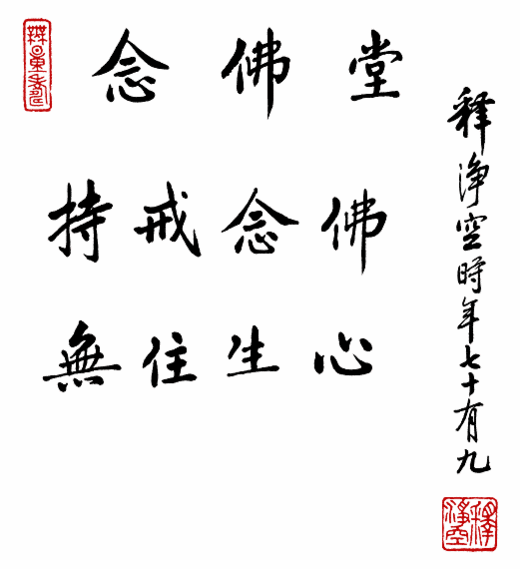 念佛堂
持戒念佛
無住生心
釋淨空時年七十有九
無量壽
釋淨空